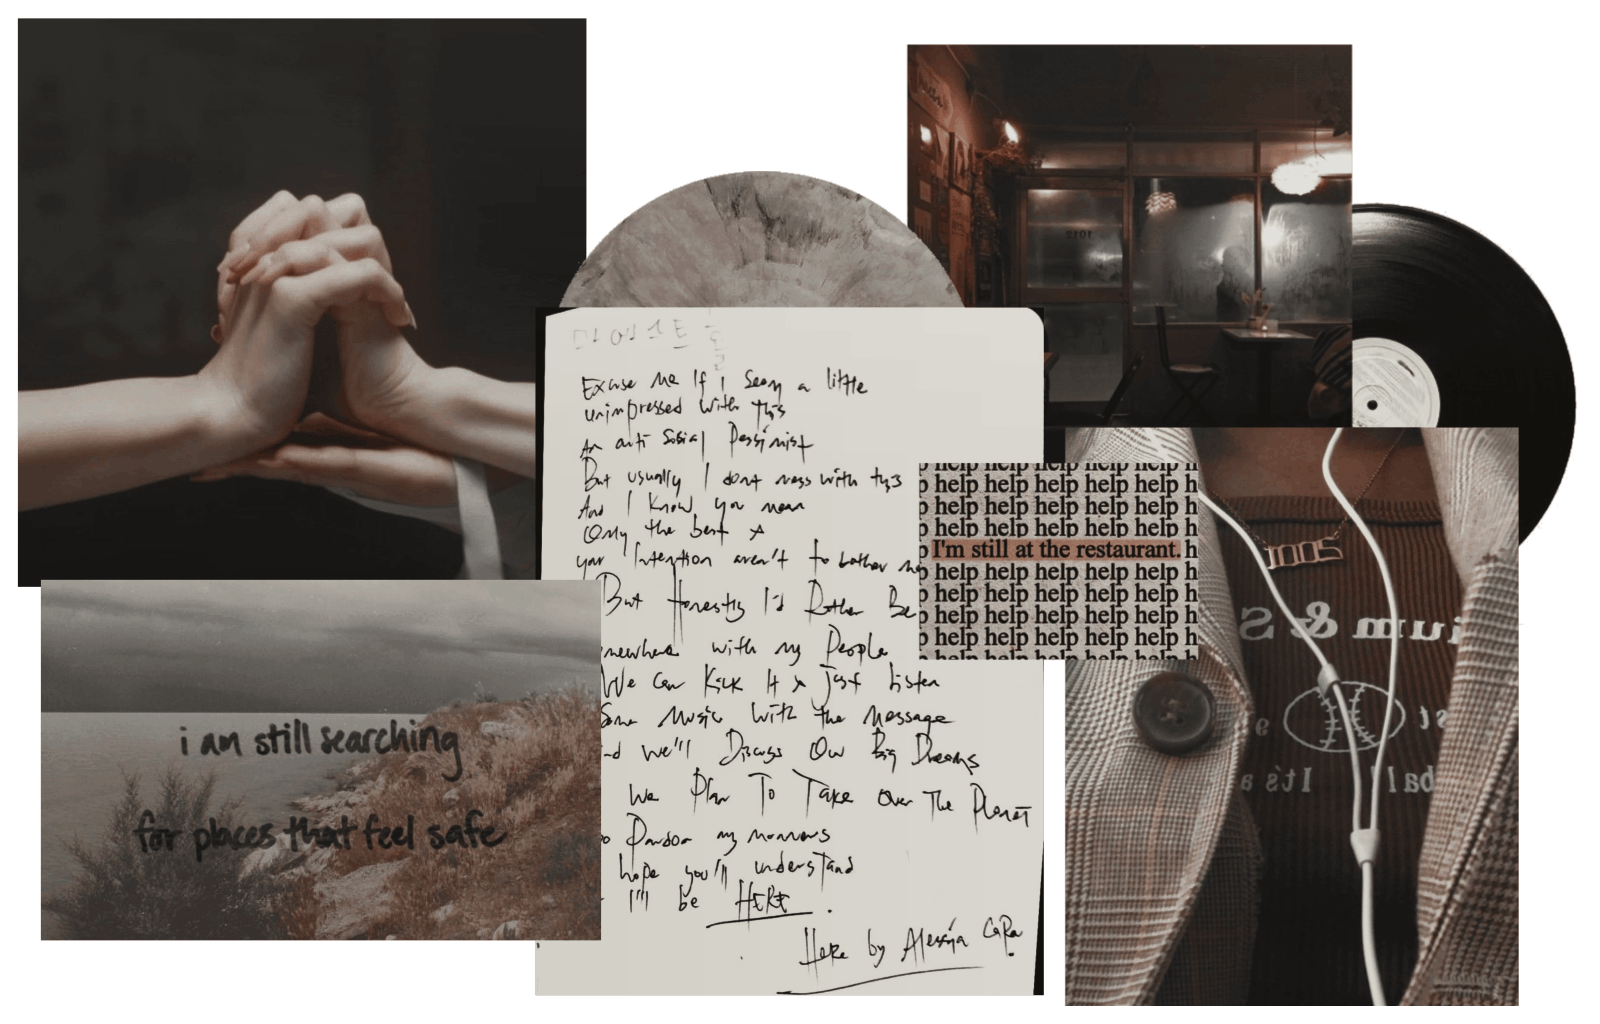 i am still searching
for places that feel safe
마에스트
Excuse me If I seem a little
unimpressed with this
An anti Social Pessimist
But usually I dont mess with this
And I Know you mean
Only the best &
your Intention aren't to bother me
But Honestly I'd Rather Be
mewhere with my People
We can Kick It & just listen
Some Music With the Message
nd we'll Discuss Our Big Dreams
We Plan To Take Over The Planet
o Pardon my manners
hope you'll understand
I'll be HERE .
Here by Alessia CaRa.
help help help help help h
p help help help help help h
p help help help help help h
p help help help help help h
p I'm still at the restaurant. h
p help help help help help h
p help help help help help h
p help help help help help h
p help help help help help h
help help help help help h
1012
2001
ium & S
st
ball It's a